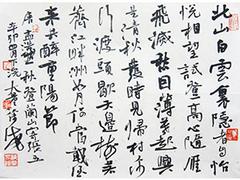 北山白雲裏隱者自怡
悦相望試登高心隨雁
飛滅愁因薄暮起興
是清秋時見歸村沙
行渡頭歇天邊樹若
薺江畔洲如月何當載
來共醉重陽節
秋登蘭山寄張五
辛卯